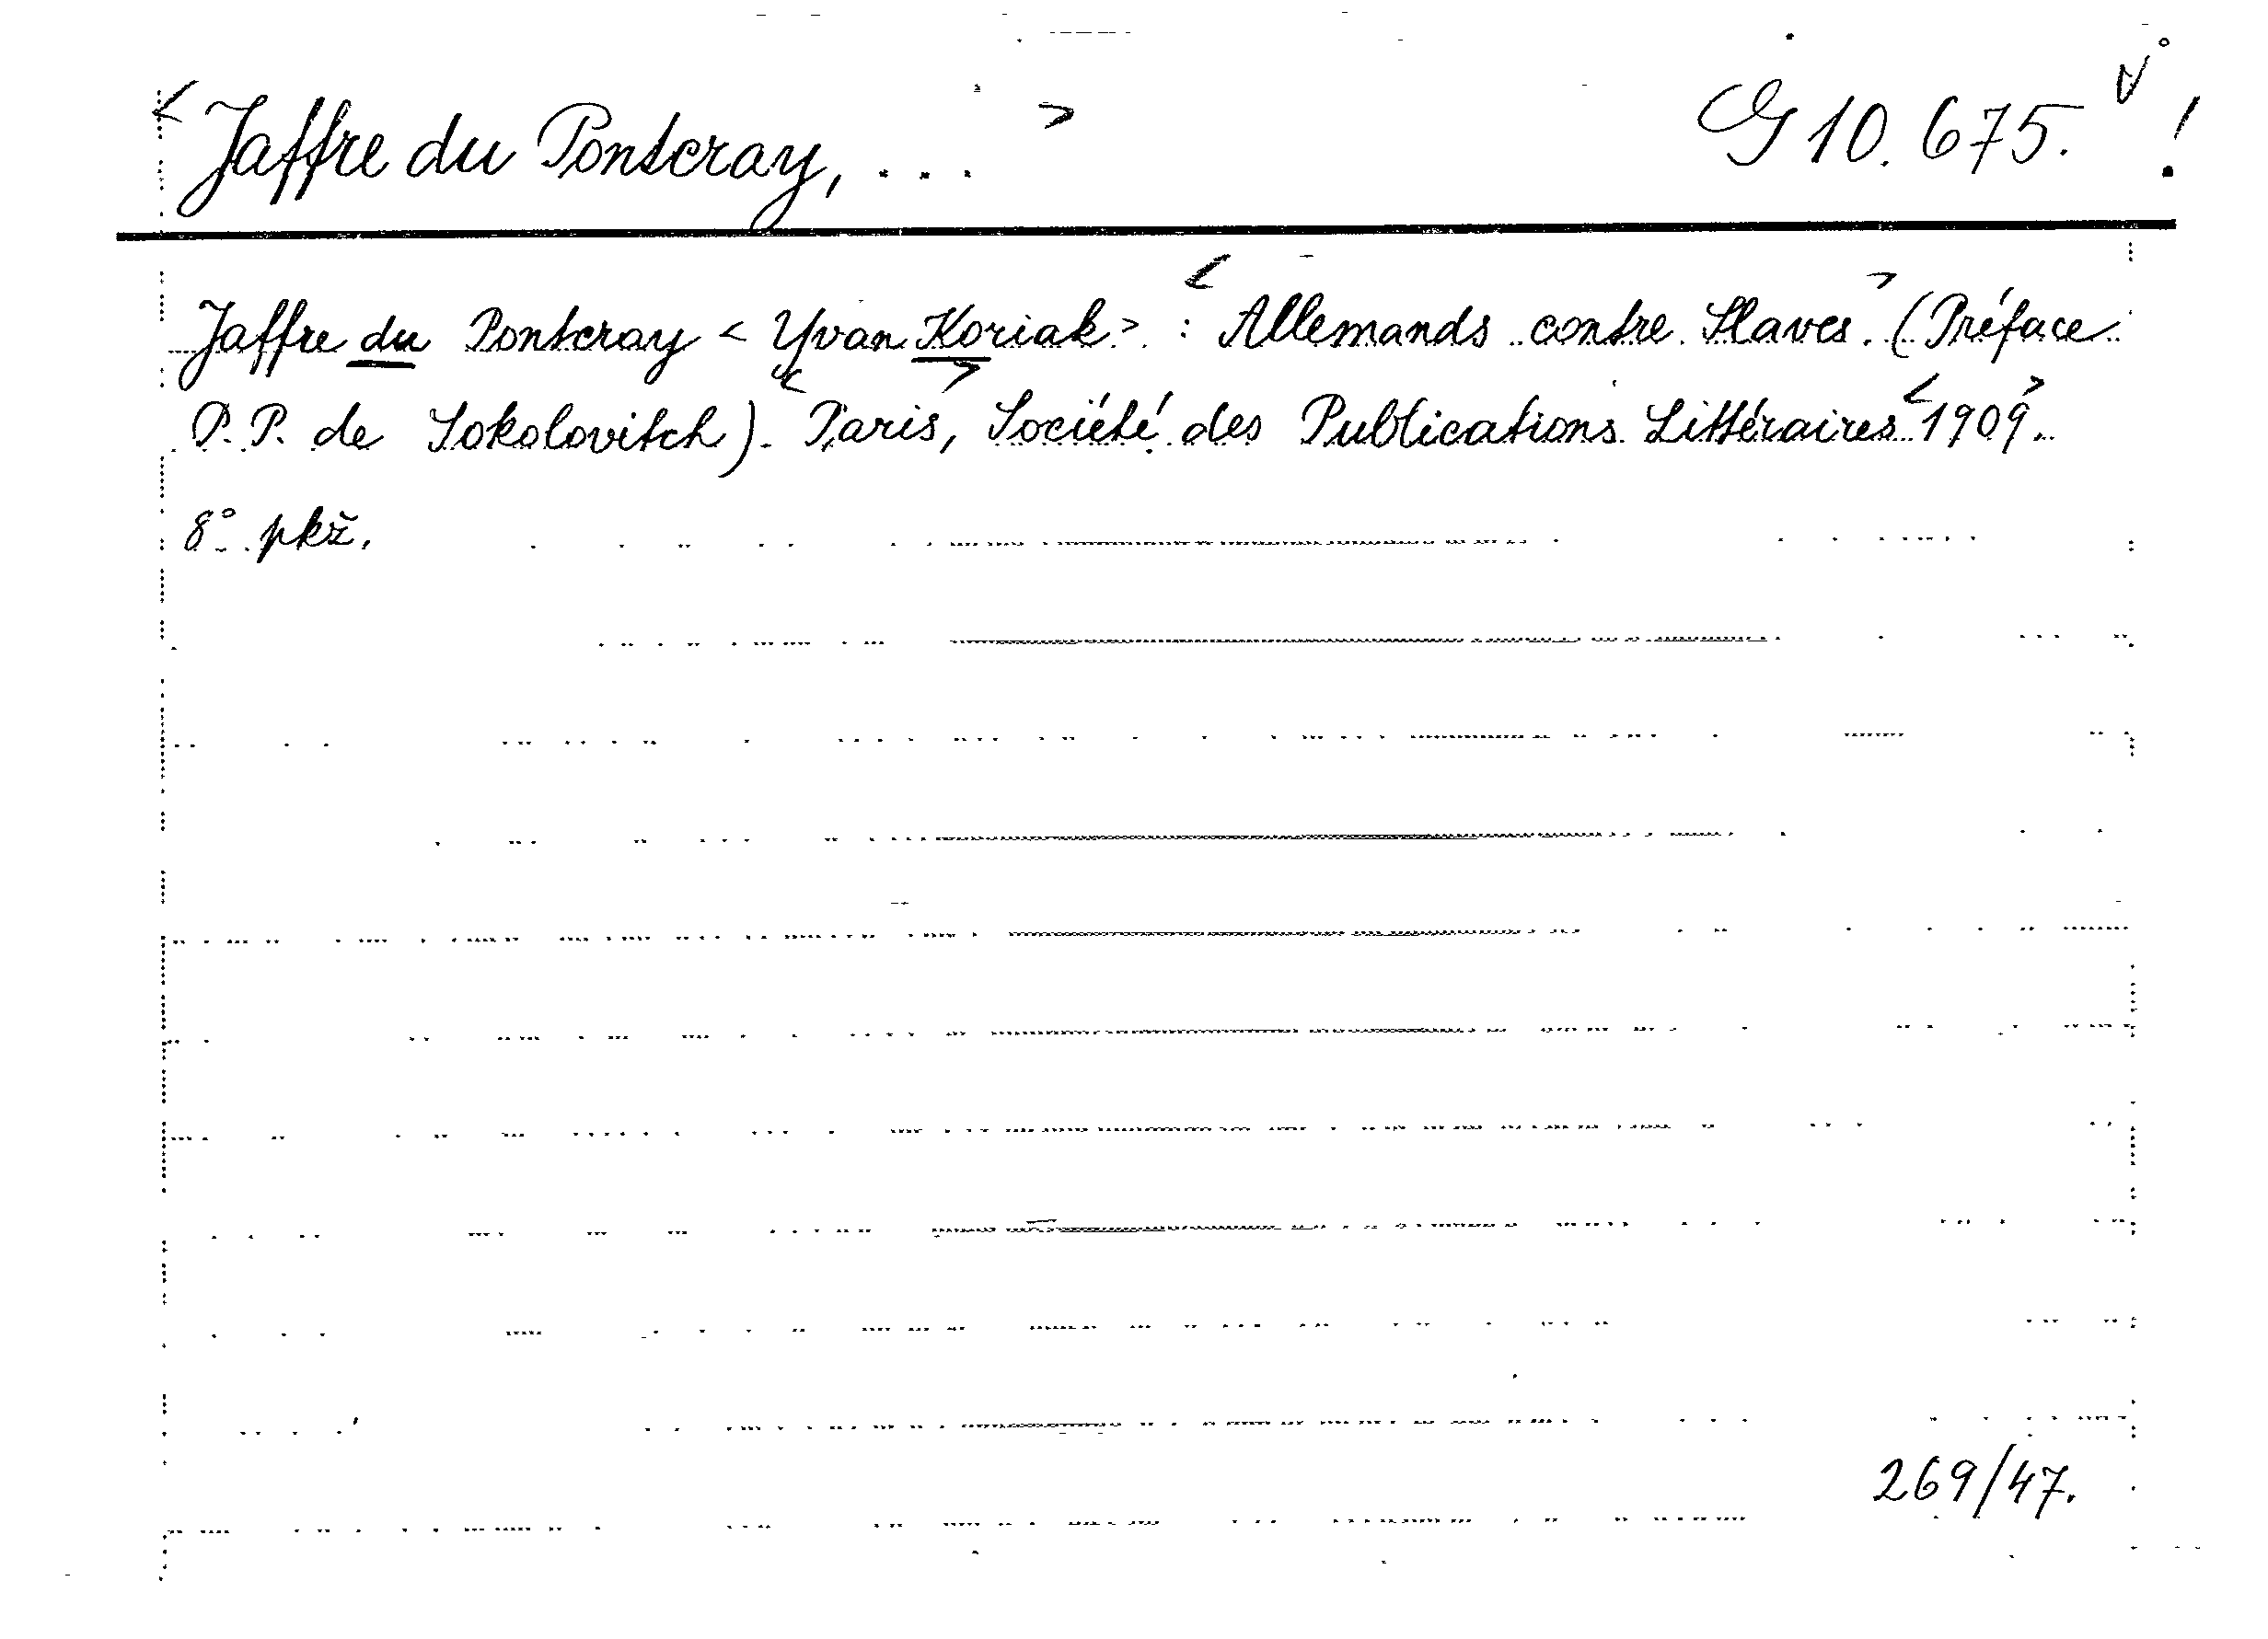 <Jaffre du Pontcray, ...> G 10.675. !
Jaffre du Pontcray <Yvan Koriak> : <Allemands contre Slaves.> (Préface
P. P. de Sokolovitch). <Paris,> Société des Publications Littéraires <1909>.
8° pkž.
269/47.